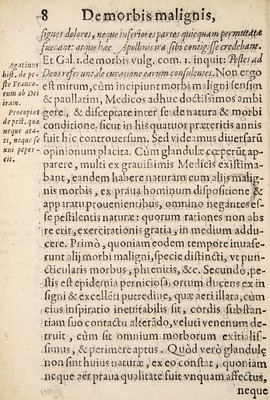 8 De morbis malignis,
signes dolores, neque inferiores partes quicquam permutatæ
fuerant: atque hæc Apollinis ira sibi contigisse credebant.
Et Gal. 1. de morbis vulg. com. 1. inquit: Pestes ad
Deos referunt de curatione earum consulentes. Non ergo
est mirum, cùm incipiunt morbi maligni sensim
& paullatim, Medicos adhuc doctissimos ambi
gere, & disceptare inter se de natura & morbi
conditione. sicut in his quatuor præteritis annis
fuit hîc controuersum. Sed videamus diuersarũ
opinionum rationes. Cùm glandulæ cœperũt ap-
parere, multi ex grauissimis Medicis existima-
bant, eandem habere naturam cum alijs malig-
nis morbis, ex praua hominum dispositione &
apparatu prouenientibus, omnino negantes es-
se pestilentis naturæ: quorum rationes non abs
re erit, exercitationis gratia, in medium addu-
cere. Primò, quoniam eodem tempore inuase-
runt alij morbi maligni, specie distincti, vt pun-
cticularis morbus, phrenitis, &c. Secundo, pe-
stis est epidemia perniciosa: ortum ducens ex in
signi & excellẽti putredine, quæ aeri illata, cùm
eius inspiratio ineuitabilis sit, cordis substan-
tiam suo contactu alterãdo, veluti venenum de-
truit, cùm sit omnium morborum exitialis-
simus, & perimere aptus. Quòd verò glandulę
non sint huius naturæ, ex eo constat, quoniam
neque aer praua qualitate fuit vnquam affectus,
neque
Agatinus
hist. de pe-
ste Franco-
rum ob Dei
iram.
Procopius
de pest. qua
neque ata-
ti, neque se
xui peper-
cit.